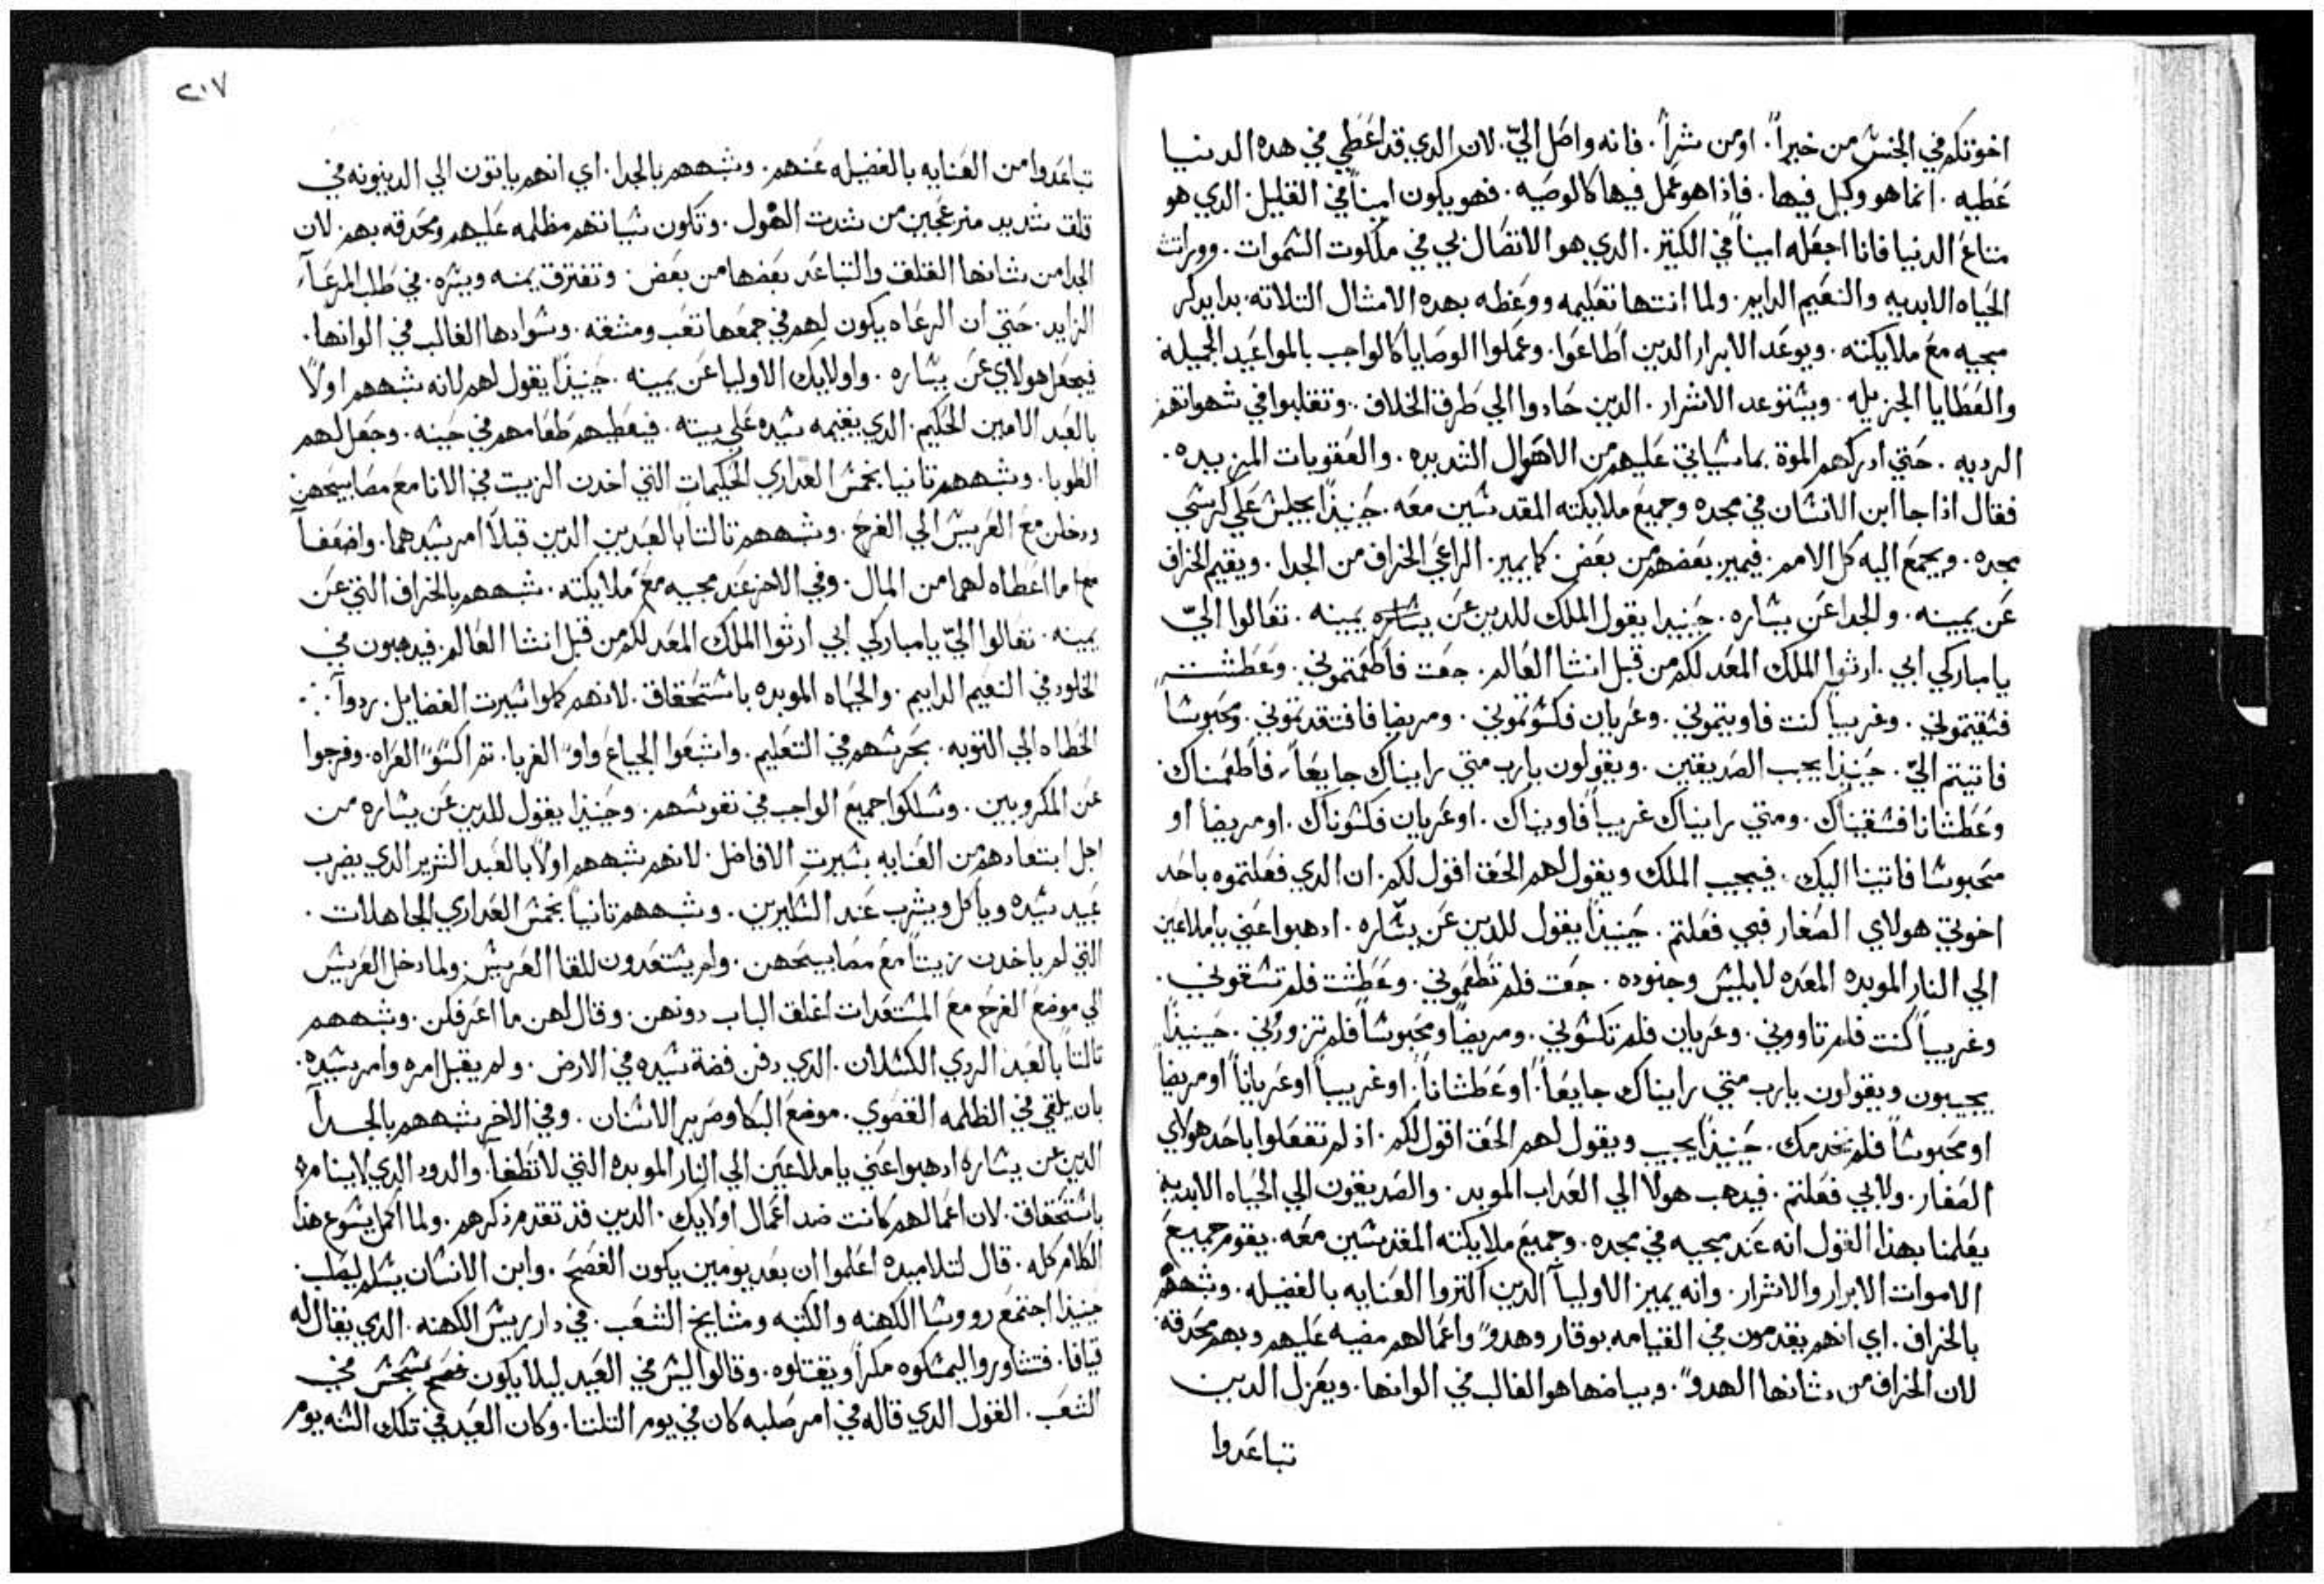 اخوتكم في الجنس من خيراً. او من شراً. فانه واصل اليّ. لان الدي قد اعطي في هده الدنيا
عطيه. انما هو وكيل فيها. فاذا هو عمل فيها كالوصيه. فهو يكون اميناً في القليل. الدي هو
متاع الدنيا فانا اجعله اميناً في الكتير. الدي هو الاتصال بي في ملكوت السموات. وورات
الحياه الابديه والنعيم الدايم. ولما انتها تعليمه ووعظه بهده الامتال التلاته. بدا يدكر
مجيه مع ملايكته. ويوعد الابرار الدين اطاعوا. وعملوا الوصايا كالواجب بالمواعيد الجميله
والعطايا الجزيله. ويستوعد الاشرار. الدين حادوا الي طرق الخلاف. وتقلبوا في شهواتهم
الرديه. حتي ادركهم الموة بما سياتي عليهم من الاهوال الشديده. والعقوبات المزيده.
فقال اذا جا ابن الانسان في مجده وجميع ملايكته المقدسين معه. حينيذاً يجلس علي كرسي
مجده. ويجمع اليه كل الامم. فيميز بعضهم من بعض. كما يميز. الراعي الخراف من الجدا. ويقيم الخراف
عن يمينه. والجدا عن يساره. حينيدا يقول الملك للدين عن يساره يمينه. تعالوا اليّ
يا مباركي ابي. ارثوا الملك المعد لكم من قبل انشا العالم. جعت فاطعمتموني. وعطشت
فسقيتموني. وغريبا كنت فاويتموني. وعريان فكسوتموني. ومريضا فافتقدتموني. ومحبوسا
فاتيتم اليّ. حينيذا يجيب الصديقين. ويقولون يارب متي رايناك جايعاً. فاطعمناك
وعطشانا فسقيناك. ومتي رايناك غريباً فاويناك. او عريان فكسوناك. او مريضا او
محبوسا فاتينا اليك. فيجيب الملك ويقول لهم الحق اقول لكم. ان الدي فعلتموه باحد
اخوتي هولاي الصغار فبي فعلتم. حينيذاً يقول للدين عن يساره. ادهبوا عني يا ملاعين
الي النار الموبده المعده لابليس وجنوده. جعت فلم تطعموني. وعطشت فلم تسقوني.
وغريباً كنت فلم تاووني. وعريان فلم تكسوني. ومريضاً ومحبوساً فلم تزوروني. حينيذاً
يجيبون ويقولون يارب متي رايناك جايعاً. او عطشاناً. او غريباً او عرياناً او مريضاً
او محبوساً فلم نخدمك. حينيذاً يجيب ويقول لهم الحق اقول لكم. اذ لم تفعلوا باحد هولاي
الصغار. ولا بي فعلتم. فيدهب هولا الي العداب الموبد. والصديقون الي الحياه الابديه
يعلمنا بهذا القول انه عند مجيه في مجده. وجميع ملايكته المقدسين معه. يقوم جميع
الاموات الابرار والاشرار. وانه يميز الاولياً الدين اكتروا العنايه بالفضيله. وشبههم
بالخراف. اي انهم يقدمون في القيامه بوقار وهدوً واعمالهم مضيه عليهم وبهم محدقه.
لان الخراف من شانها الهدوً. وبياضها هو الغالب في الوانها. ويعزل الدين
تباعدوا
٢١٧
تباعدوا من العنايه بالفضيله عنهم. وشبههم بالجدا. اي انهم ياتون الي الدينونه في
قلق شديد منزعجين من شدت الهول. وتكون سياتهم مظلمه عليهم ومحدقه بهم لان
الجدا من شانها القلق والتباعد بعضها من بعض. وتفترق يمنه ويسره. في طلب المرعآ
الزايد. حتي ان الرعاه يكون لهم في جمعها تعب ومشقه. وسوادها الغالب في الوانها.
فيجعل هولاي عن يساره. واولايك الاوليا عن يمينه. حينيذاً يقول لهم لانه شبههم اولاً
بالعبد الامين الحكيم. الدي يقيمه سيده علي بيته. فيعطيهم طعامهم في حينه. وجعل لهم
الطوبا. وشبههم تانيا بخمس العداري الحكيمات التي اخدن الزيت في الانا مع مصابيحهن
ودخلن مع العريس الي الفرح. وشبههم تالتاً بالعبدين الدين قبلاً امر سيدهما. واضعفاً
ما اعطاه لهما من المال. وفي الاخر عند مجيه مع ملايكته. شبههم بالخراف التي عن
يمينه. تعالوا اليّ يا مباركي ابي ارثوا الملك المعد لكم من قبل انشا العالم. فيدهبون في
الخلود في النعيم الدايم. والحياه الموبده باستحقاق. لانهم كملوا سيرت الفضايل. ردوآ
الخطاه الي التوبه. بحرسهم في التعليم. واشبعوا الجياع واوً الغربا. تم اكسوً العراه. وفرجوا
عن المكروبين. وسلكوا جميع الواجب في نفوسهم. وحينيذا يقول للدين عن يساره من
اجل ابتعادهم من العنايه بسيرت الافاضل. لانهم شبههم اولاً بالعبد الشرير الدي يضرب
عبيد سيده وياكل ويشرب عند السكيرين. وشبههم تانياً بخمس العداري الجاهلات.
التي لم ياخدن زيتاً مع مصابيحهن. ولم يستعدون للقا العريس. ولما دخل العريس
الي موضع الفرح مع المستعدات اغلق الباب دونهن. وقال لهن ما اعرفكن. وشبههم
تالتاً بالعبد الردي الكسلان. الدي دفن فضة سيده في الارض. ولم يقبل امره وامر سيده.
بان يلقي في الظلمه القصوي. موضع البكا وصرير الاسنان. وفي الاخر شبههم بالجدآ
الدين عن يساره ادهبوا عني يا ملاعين الي النار الموبده التي لا تطفا. والدود الدي لا ينام
باستحقاق. لان اعمالهم كانت ضد اعمال اولايك. الدين قد تقدم ذكرهم. ولما اكمل يسوع هذا
الكلام كله. قال لتلاميده اعلموا ان بعد يومين يكون الفصح. وابن الانسان يسلم ليصلب.
حينيذا اجتمع رووسا الكهنه والكتبه ومشايخ الشعب. في دار رييس الكهنه. الدي يقال له
قيافا. فتشاوروا ليمسكوه مكراً ويقتلوه. وقالوا ليس في العيد ليلا يكون في
الشعب. القول الدي قاله في امر صلبه كان في يوم التلتا. وكان العيد في تلك السنه يوم